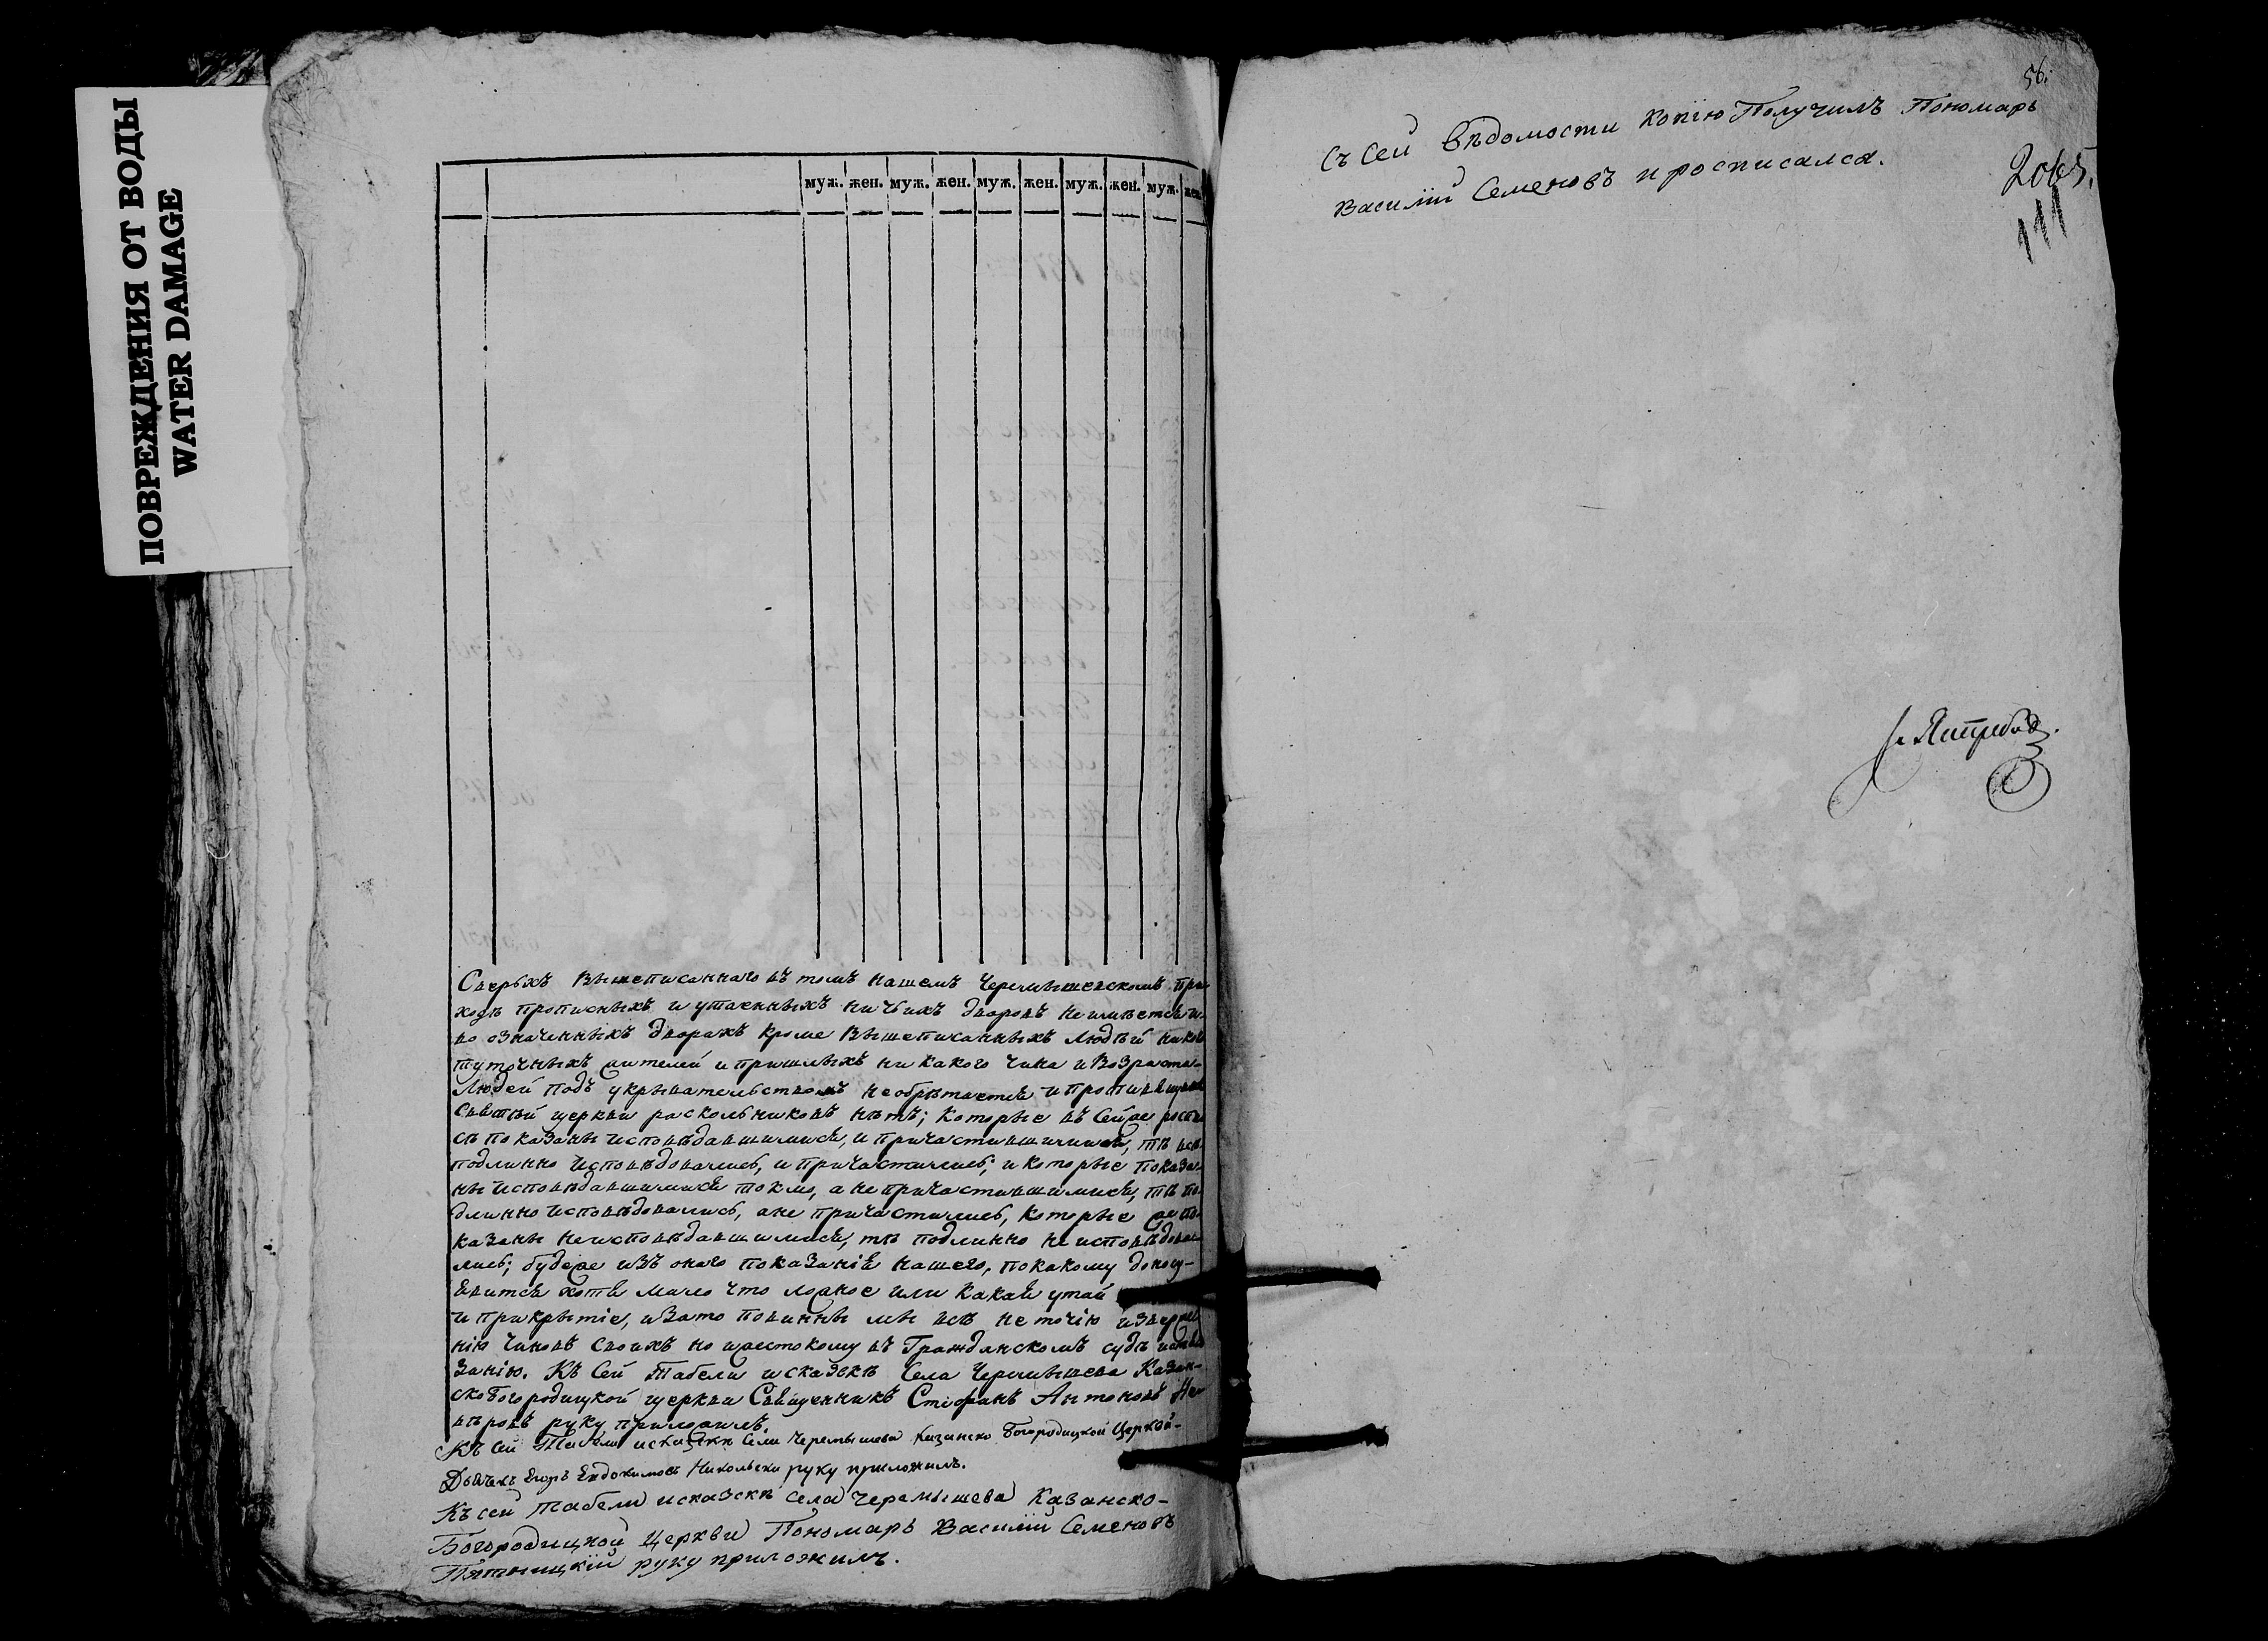 ПОВРЕЖДЕНИЯ ОТ ВОДЫ
WATER DAMAGE
муж. жен. муж. жен. муж. жен. муж. жен. муж. жен
Сверьхъ Вышеписаннаго въ томъ нашемъ Черемышевскомъ при
ходѣ прописныхъ и утаенныхъ ничьихъ дворовъ неимѣется и
во означенныхъ дворахъ кроме Вышеписанныхъ Людѣй
жителей и пришлыхъ ни какого чина и Возраста
Людей подъ укрывательствомъ необрѣтается и
Святѣй церкви раскольниковъ нѣтъ; Которые въ Сей же роспи
сѣ показаны исповѣдавшимися, и причастившимися, тѣ всѣ
подлинно исповѣдовались, и причастились; и которые показа-
ны исповѣдавшимися токмо, а не причастившимися, тѣ по-
длинно исповѣдовались, а не причастились, Которые же по-
казаны неисповѣдавшимися, тѣ подлинно не исповѣдова-
лись; будеже изъ онаго показанія нашего, покакому доносу
явится хотя мало что ложное или какая утай
и прикрытіе, и Зато повинны мы всѣ не точію изверже
нію чиновъ своихъ но и жестокому въ Гражданскомъ судѣ истя
занію. Къ Сей Табели и сказкѣ Села Черемышева Казан-
скобогородицкой церкви Священникъ Стефанъ Антоновъ
руку приложилъ.
Къ сей Табели искаскѣ Села Черемышева Казанско Богородицкой Церкви
Дьячекъ Егоръ Евдокимовъ Никольски руку приложилъ.
Къ сей табели исказскѣ села Черемышева Казанско-
Богородицкой Церкви Пономарь Василій Семеновъ
Пятницкій руку приложилъ.
56.
Съ Сей вѣдомости копію Получилъ Пономарь
Василій Семеновъ и росписался.
2065.
111